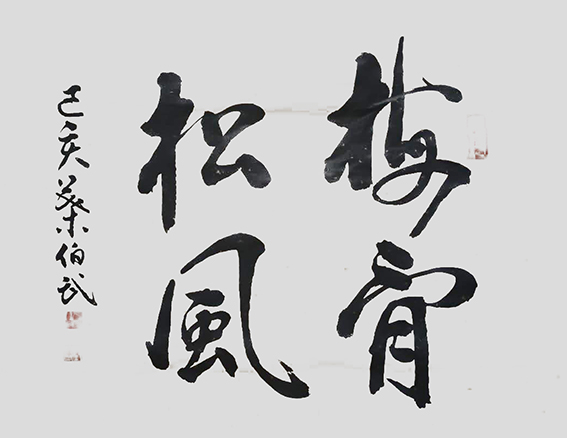 梅骨
松風
己亥桑伯武